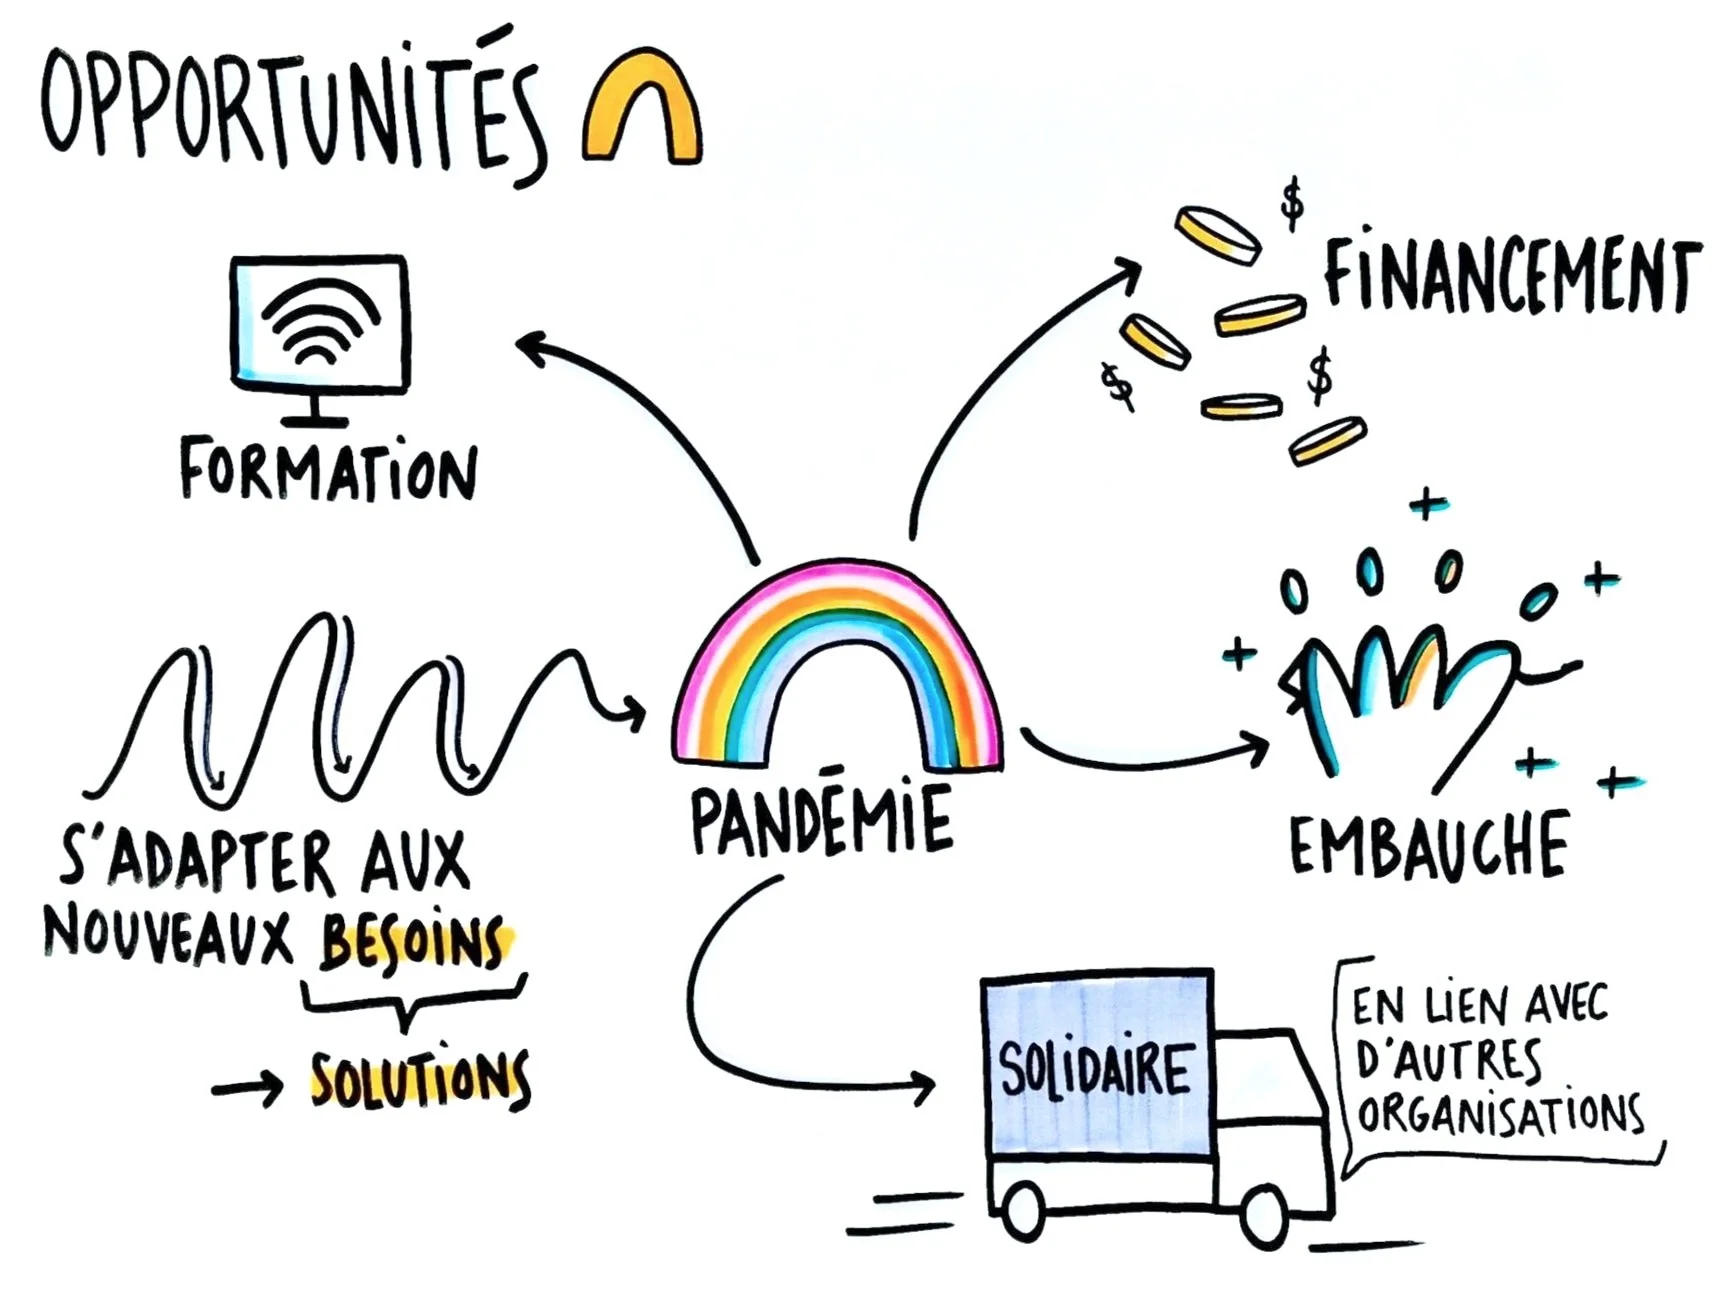 OPPORTUNITÉS
$
FINANCEMENT
$
$
FORMATION
PANDÉMIE
EMBAUCHE
S'ADAPTER AUX
NOUVEAUX BESOINS
→ SOLUTIONS
SOLIDAIRE
EN LIEN AVEC
D'AUTRES
ORGANISATIONS